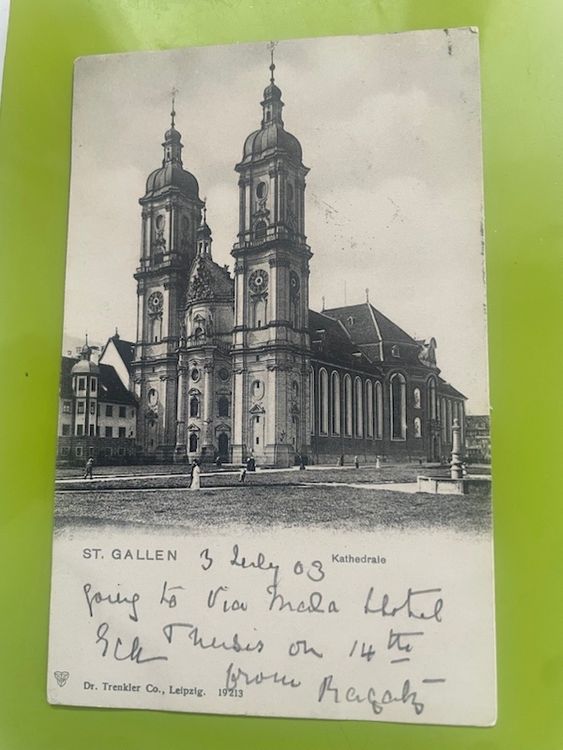 ST. GALLEN 3 July 03 Kathedrale
going to Via Mala Hotel
Thusis on 14th
from Ragatz
Dr. Trenkler Co., Leipzig. 19213